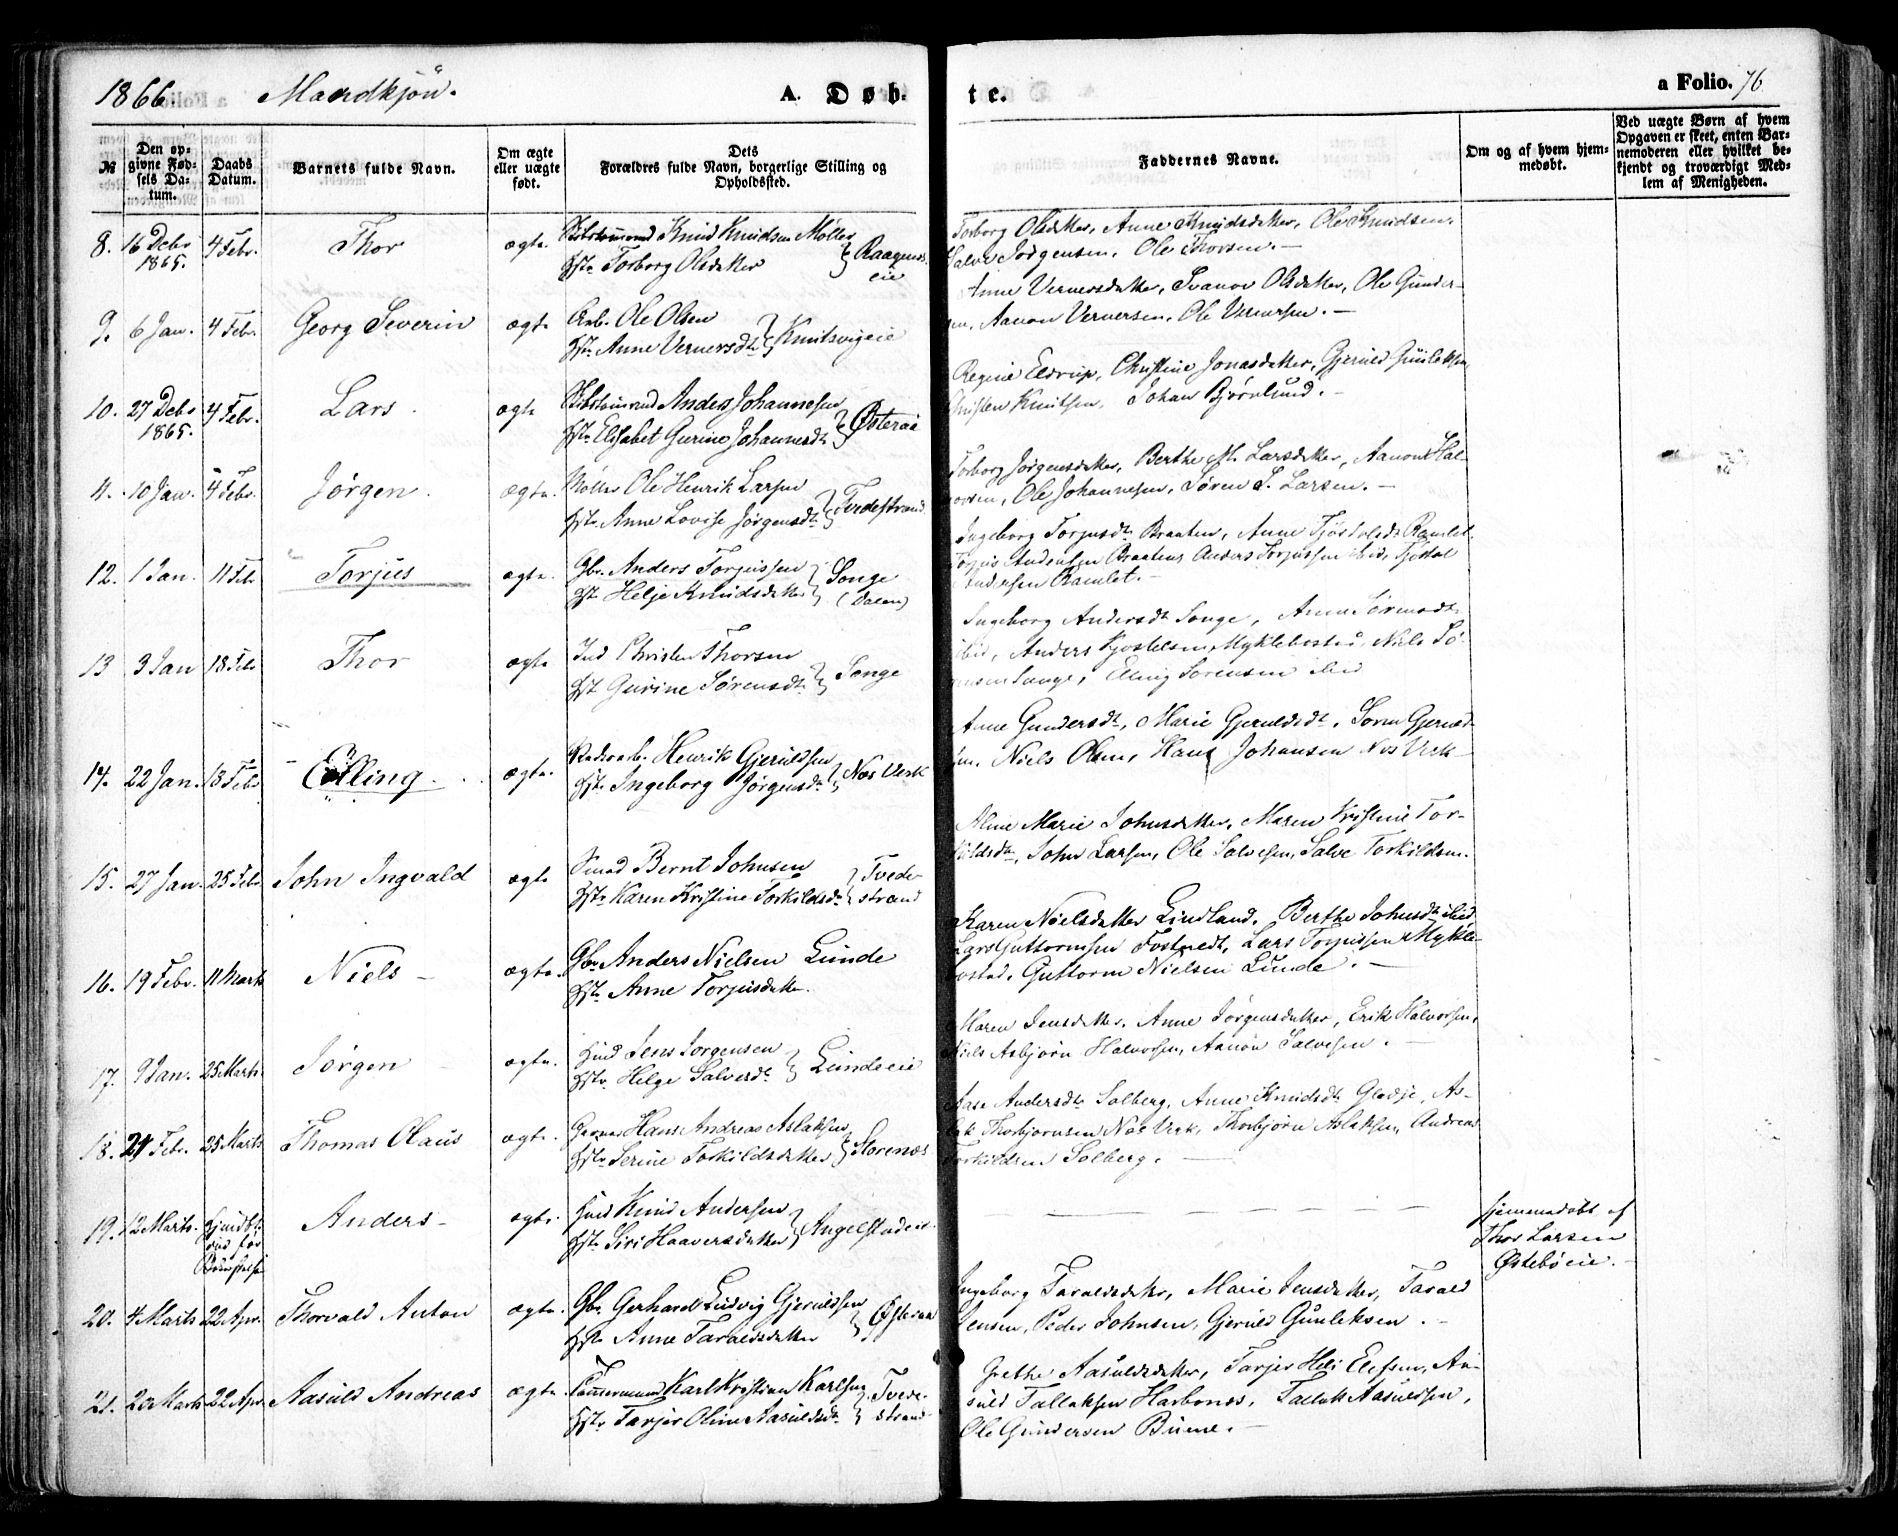 1866. Mandkjön. A. Døb- te. a Folio. 76
№
Den op-
givne Fød-
sels Da-
tum.
Daabs
Datum.
Barnets fulde Navn.
Om ægte
eller uægte
født.
Dets
Forældres fulde Navn, borgerlige Stilling og
Opholdssted.
Faddernes Navne.
Om og af hvem hjem-
medøbt.
Ved uægte Børn af hvem
Opgaven er skeet, enten Bar-
nemoderen eller hvilket be-
kjendt og troværdigt Med-
lem af Menigheden.
8. 16 Debr 1865. 4 Febr. Thor ægte. Knud Knudsen Møller
Hstr Torborg Olsdatter
Torborg Olsdatter, Anne Knudsdatter, Ole Knudsen.
Salve Jørgensen, Ole Thorsen. —
9. 6 Jan. 4 Febr. Georg Severin ægte Arb. Ole Olsen
Hstr Anne Vernersdtr Knutsvigeie
Anne Vernersdatter, Ole Gunder-
sen, Aanon Vernersen, Ole Vernersen. —
10. 27 Debr 1865. 4 Febr. Lars. ægte Anders Johannesen
Hstr Elisabet Gurine Johannesdtr Østeraa
Regine Eldrup, Christine Jonasdatter, Gjeruld Gunleksen
Christen Knutsen, Johan Bjørnlund. —
11. 10 Jan. 4 Febr. Jørgen. ægte. Møller Ole Henrik Larsen
Hstr Anne Lovise Jørgensdtr Tvedestrand
Torborg Jørgensdatter, Berthe M. Larsdatter, Aanon Hal-
vorsen, Ole Johannesen, Søren S. Larsen. —
12. 1 Jan. 11 Febr Torjus ægte. Gbr. Anders Torjussen
Hstr Helje Knudsdatter Songe (Dalen)
Ingeborg Torjusdtr Braaten, Anne Ramlet.
Torjus Andersen Braaten, Anders Torjussen ibid, Tjøstol
Andersen Ramlet. —
13 3 Jan 18 Febr Thor ægte Ind Christen Thorsen
Hstr Gurine Sørensdtr Songe
Ingeborg Andersdtr Songe, Anne Sørensdtr
ibid, Anders Myklebostad, Niels Sø-
rensen Songe, Elling Sørensen ibid
14. 22 Jan. 18 Febr Elling. ægte. Henrik Gjeruldsen
Hstr Ingeborg Jørgensdtr Næs Værk
Anne Gundersdtr, Marie Gjeruldsdtr, Søren Gjeruld-
sen, Niels Olsen, Hans Johansen Næs Verk —
15. 27 Jan. 25 Febr John Ingvald ægte Smed Bernt Johnsen
Hstr Karen Kristine Torkildsdtr Tvede-
strand
Aline Marie Johnsdatter, Maren Kristine Tor-
kildsdtr, John Larsen, Ole Salvesen, Salve Torkildsen.
16. 19 Febr. 11 Marts Niels — ægte. Gbr Anders Nielsen Lunde
Hstr Anne Torjusdatter.
Karen Nielsdatter Lindland, Berthe Johnsdtr ibid
Lars Guttormsen Fostvedt, Lars Torjussen Mykle-
bostad, Guttorm Nielsen Lunde. —
17. 9 Jan. 25 Marts Jørgen — ægte. Hmd Jens Jørgensen
Hstr Helge Salvesdtr Lundeeie
Maren Jensdatter, Anne Jørgensdatter, Erik Halvorsen,
Niels Asbjørn Halvorsen, Aanon Salvesen. —
18. 21 Febr. 25 Marts Thomas Olaus ægte. Hans Andreas Aslaksen
Hstr Serine Torkildsdatter Morenæs
Aase Andersdtr Solberg, Anne Knudsdtr Gladje, As-
lak Thorbjørnsen Næs Verk, Thorbjørn Aslaksen, Andreas
Torkildsen Solberg. —
19. 12 Marts. Anders — ægte. Hmd Knud Andersen
Hstr Siri Haaversdatter Angelstadeie
hjemmedøbt af
Thor Larsen
Østebøeie. —
20. 4 Marts 22 Apr. Thorvald Anton ægte. Gbr. Gerhard Ludvig Gjeruldsen
Hstr Anne Taraldsdatter Østeraa
Ingeborg Taraldsdatter, Marie Jensdatter, Tarald
Jensen, Peder Johnsen, Gjeruld Gunleksen. —
21. 20 Marts 22 Apr. Aasuld Andreas ægte. Tømmermand Karl Kristian Karlsen
Hstr Tarjer Oline Aasuldsdtr Tvede-
strand
Grethe Aasuldsdatter, Elefsen, Aa-
suld Tallaksen Hasbonæs, Tallak Aasuldsen,
Ole Gundersen Buene. —